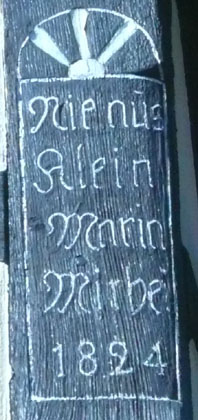 Nienüs
Klein
Marin
Mirbei
1824